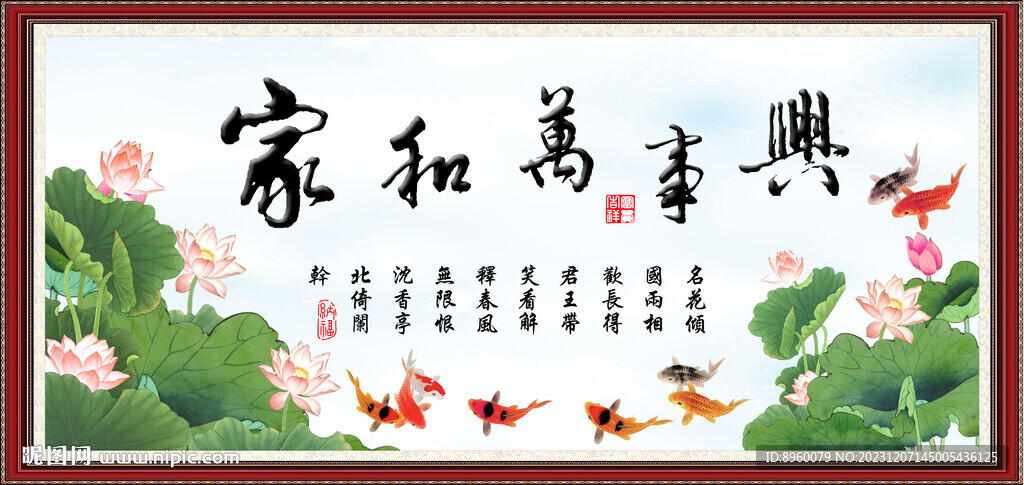 家和萬事興
吉祥
名花傾
國兩相
歡長得
君王帶
笑看解
釋春風
無限恨
沈香亭
北倚闌
幹
納福
昵图网 www.nipic.com
ID:8960079 NO:20231207145005436125